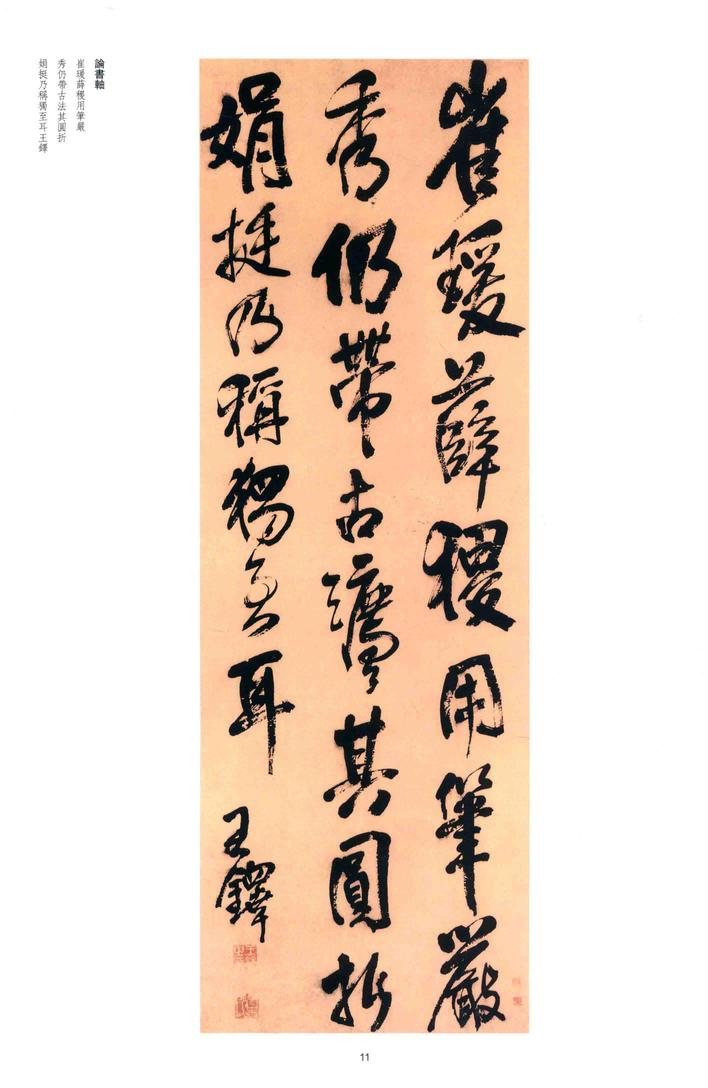 論書軸
崔瑗薛稷用筆嚴
秀仍帶古法其圓折
娟挺乃稱獨至耳王鐸
崔瑗薛稷用筆嚴
秀仍帶古灋其圓折
娟挺乃稱獨至耳
王鐸
11